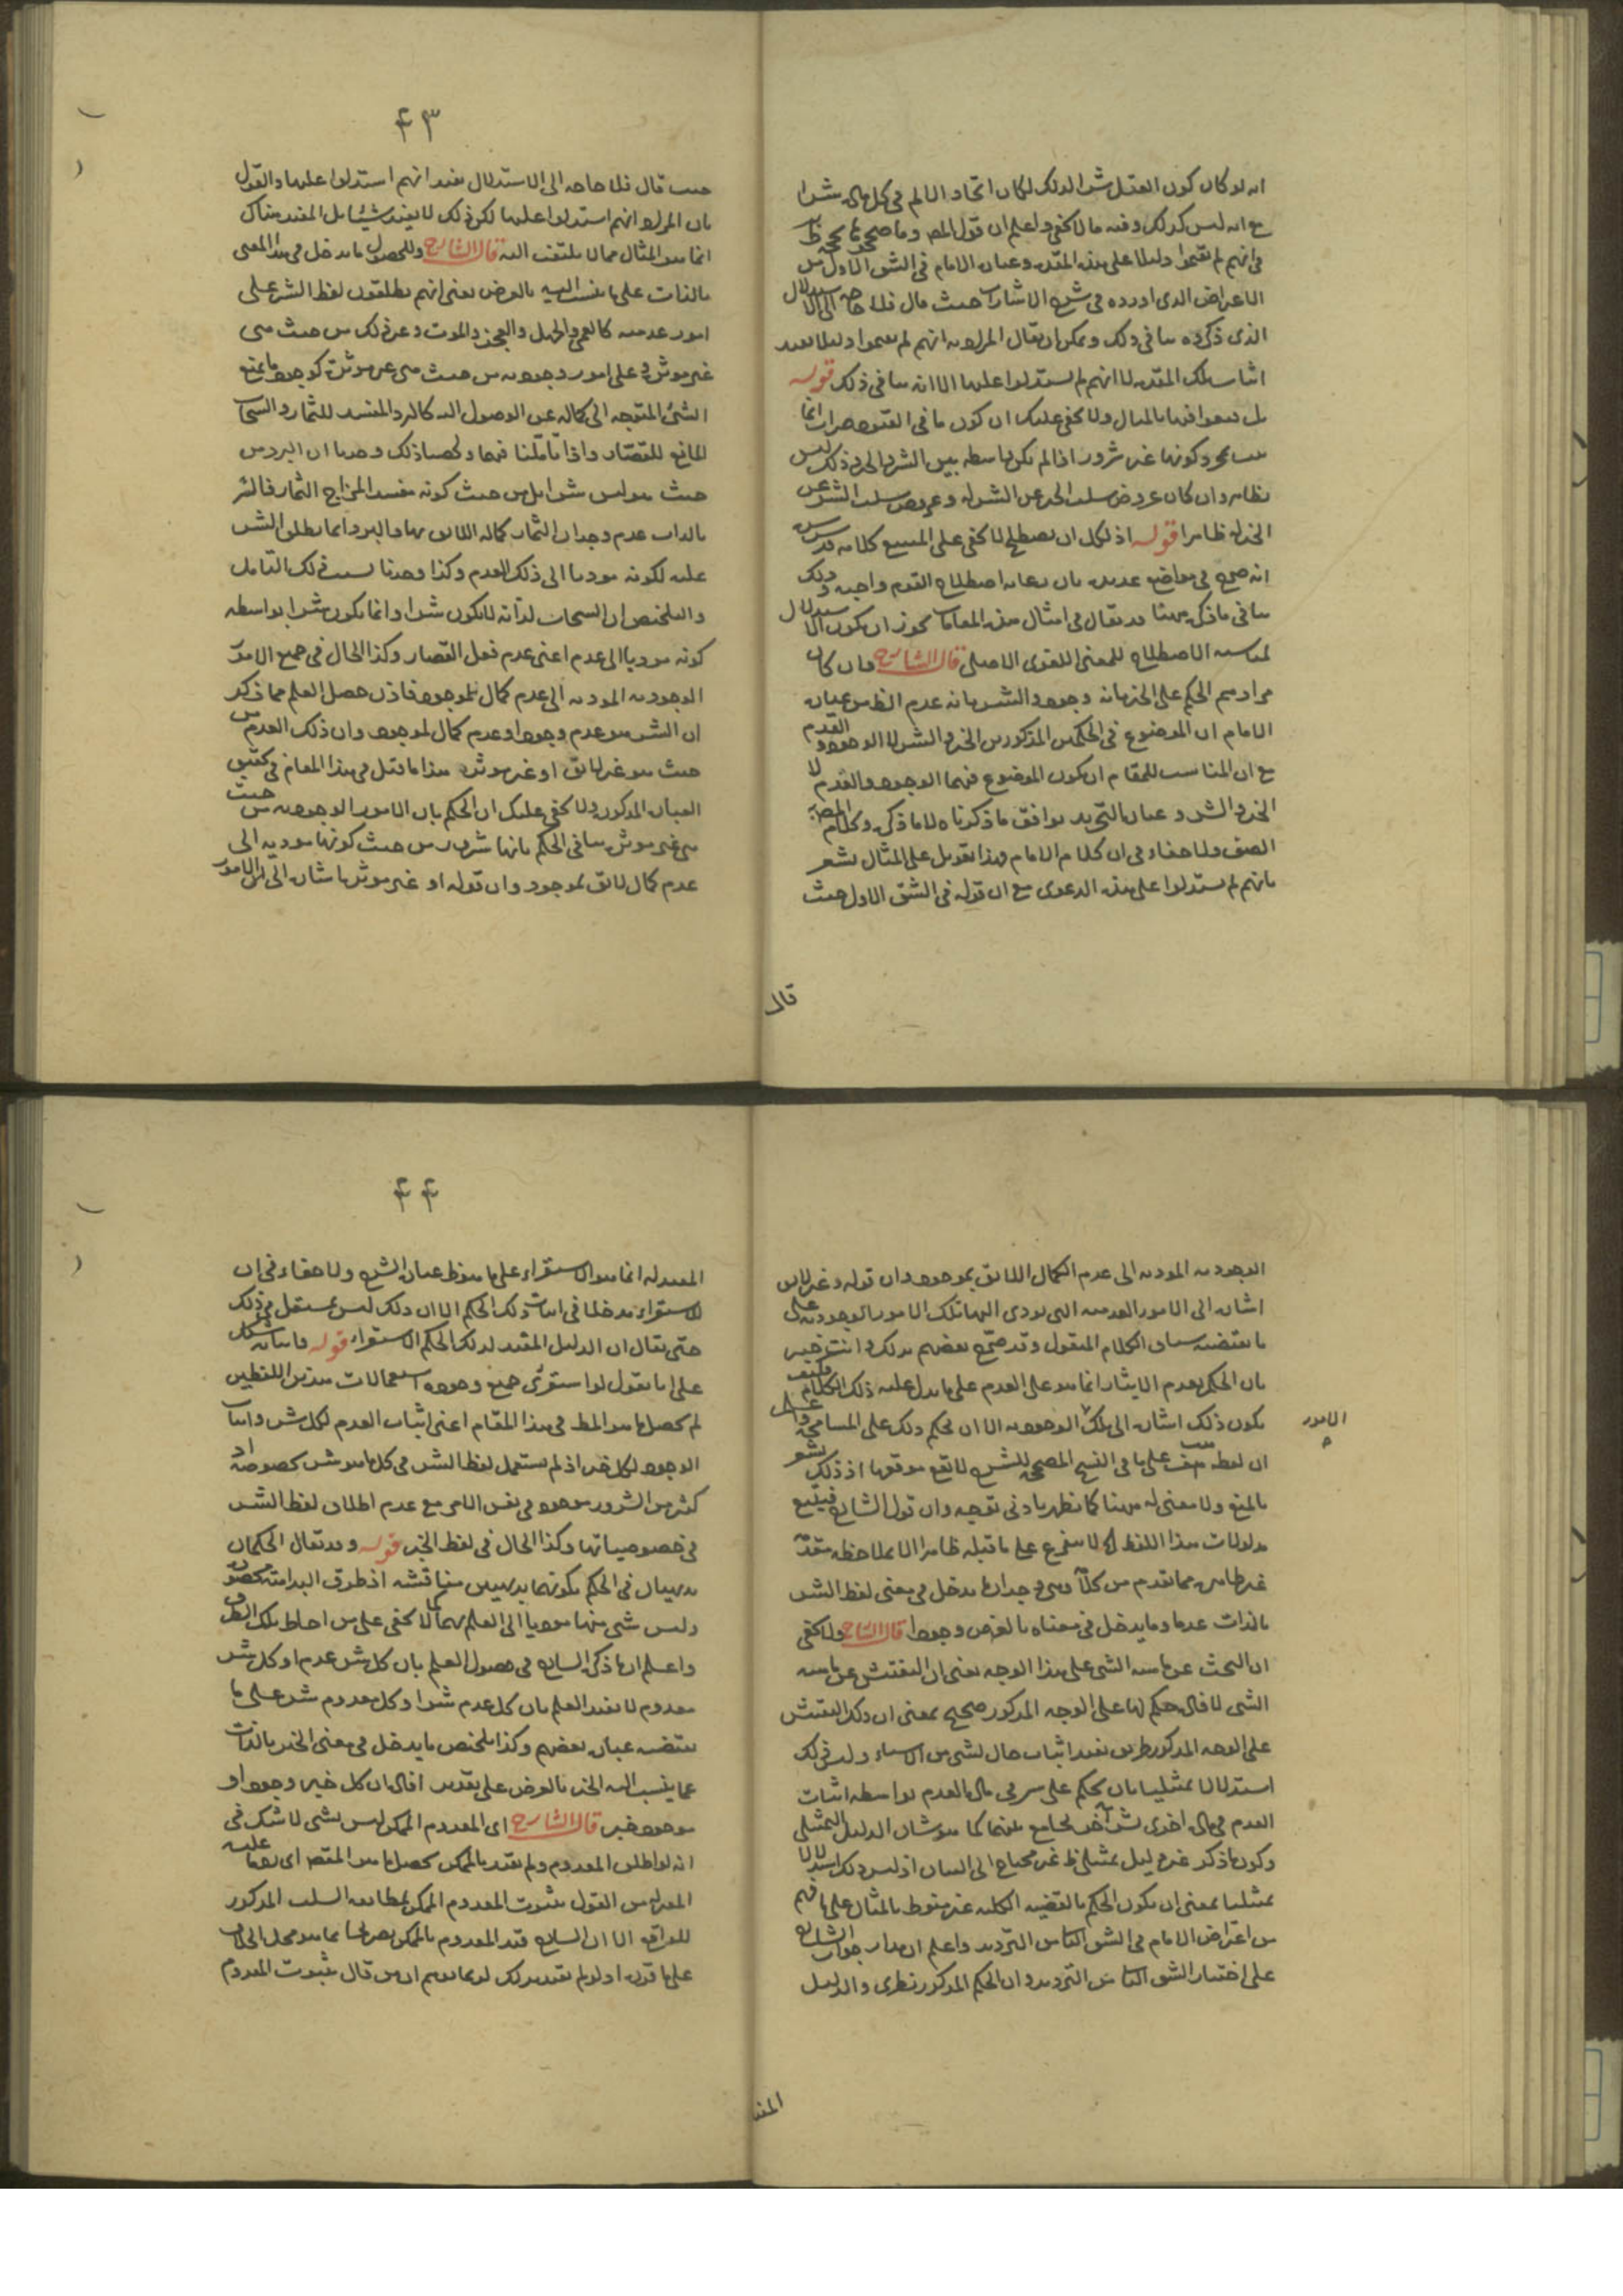 انه لو كان كون القتل شرا لذلك لكان اتحاد الالم في كل مادة شرا
مع انه ليس كذلك وفيه ما لا يخفى واعلم ان قول المص وما
في انهم لم يقيموا دليلا على هذه المقدمة وعبارة الامام في الشق الاول من
الاعراض الذى اورده في شرح الاشارات حيث قال فلا حاجة الى الاستدلال
الذى ذكره ينافى ذلك ويمكن ان يقال المراد به انهم لم يقيموا دليلا يفيد
اثبات تلك المقدمة لا انهم لم يستدلوا عليها الا انه ينافى ذلك قوله
بل قنعوا فيها بالمثال ولا يخفى عليك ان كون ما في القنوع
بمجرد كونها غير شرور اذا لم يكن واسطة بين الشر والخير وذلك ليس
بظاهر وان كان عروض سلب الخير عن الشر له وعروض سلب الشر عن
الخير له ظاهرا قوله اذ لكل ان يصطلح لا يخفى على المتتبع كلامه قدس سره
انه صرح في مواضع عديدة بان رعاية اصطلاح القوم واجبة وذلك
ينافى ما ذكره ههنا وقد يقال في امثال هذه المقامات يجوز ان يكون الاستدلال
لمناسبة الاصطلاح للمعنى اللغوى الاصلى قال الشارح وان كان
مرادهم الحكم على الخير بانه وجود والشر بانه عدم الظ من عبارة
الامام ان الموضوع في الحكمين المذكورين الخير والشر لا الوجود والعدم
مع ان المناسب للمقام ان يكون الموضوع فيهما الوجود والعدم لا
الخير والشر وعبارة التجريد يوافق ما ذكرناه لا ما ذكره وكلام المص
الصق ولا خفاء في ان كلام الامام وهذا تعويل على المثال يشعر
بانهم لم يستدلوا على هذه الدعوى مع ان قوله في الشق الاول حيث
قال
٤٣
حيث قال فلا حاجة الى الاستدلال يفيد انهم استدلوا عليها والقول
بان المراد انهم استدلوا عليها لكن ذلك لا يفيد شيئا بل المفيد هناك
انما هو المثال مما لا يلتفت اليه قال الشارح وللحصول ما يدخل في هذا المعنى
بالذات على ما ينسب اليه بالعرض يعنى انهم يطلقون لفظ الشر على
امور عدمية كالعمى والجهل والعجز والموت وغير ذلك من حيث هى
غير مؤثرة وعلى امور وجودية من حيث هى غير مؤثرة كوجود ما يمنع
الشئ المتوجه الى كماله عن الوصول اليه كالبرد المفسد للثمار والسحاب
المانع للقصار واذا تاملنا فيها ولخصنا ذلك وجدنا ان البرد من
حيث هو ليس شرا بل من حيث كونه مفسد المزاج الثمار فالشر
بالذات عدم وجدان الثمار كماله اللائق بها والبرد انما يطلق الشر
عليه لكونه موديا الى ذلك العدم وكذا وجدنا بسبب ذلك التامل
والتلخيص ان السحاب لذاته لا يكون شرا وانما يكون شرا بواسطة
كونه موديا الى عدم اعنى عدم فعل القصار وكذا الحال في جميع الامور
الوجودية المودية الى عدم كمال لموجود فاذن حصل العلم مما ذكر
ان الشر هو عدم وجود او عدم كمال لموجود وان ذلك العدم من
حيث هو غير لائق او غير مؤثر هذا ما قيل في هذا المقام في تحقيق
العبارة المذكورة ولا يخفى عليك ان الحكم بان الامور الوجودية من حيث
هى غير مؤثرة ينافى الحكم بانها شرور من حيث كونها مودية الى
عدم كمال لائق لموجود وان قوله او غير مؤثر اشارة الى تلك الامور
الوجودية المودية الى عدم الكمال اللائق بموجود وان قوله وغير لائق
اشارة الى الامور العدمية التى يودى اليها تلك الامور الوجودية على
ما يقتضيه سياق الكلام المنقول وقد صرح بعضهم بذلك وانت خبير
بان الحكم بعدم الايثار انما هو على العدم على ما يدل عليه ذلك الكلام فكيف
يكون ذلك اشارة الى تلك الوجودية الا ان يحكم ذلك على المسامحة
الامور
ان لفظة على ما في النسخ المصححة للشرح لا تقع موقعها اذ ذلك يشعر
بالمنع ولا معنى له ههنا كما يظهر بادنى توجه وان قول الشارح فيتبع
مدلولات هذا اللفظ لا يتفرع على ما قبله ظاهرا الا بملاحظة مقدمة
غير ظاهرة مما تقدم من كلامه وهى وجدان ما يدخل في معنى لفظ الشر
بالذات عدما وما يدخل في معناه بالعرض وجودا قال الشارح ولا يخفى
ان البحث عن ماهية الشى على هذا الوجه يعنى ان التفتيش عن ماهية
الشى لا فادة حكم لها على الوجه المذكور صحيح بمعنى ان ذلك التفتيش
على الوجه المذكور طريق يفيد اثبات حال لشى من الاشياء وليس ذلك
استدلالا تمثيليا بان يحكم على شر في مادة بالعدم بواسطة اثبات
العدم في مادة اخرى لشر آخر بجامع بينهما كما هو شان الدليل التمثيلى
وكون ما ذكر غير دليل تمثيلى ظ غير محتاج الى البيان اذ ليس ذلك استدلالا
تمثيليا بمعنى ان يكون الحكم بالقضية الكلية غير منوط بالمثال على ما فهم
من اعتراض الامام في الشق الثانى من الترديد واعلم ان مدار جواب الشارح
على اختيار الشق الثانى من الترديد وان الحكم المذكور نظرى والدليل
المفيد
٤٤
المفيد له انما هو الاستقراء على ما هو ظ عبارة الشرح ولا خفاء في ان
للاستقراء مدخلا في اثبات ذلك الحكم الا ان ذلك ليس بمستقل في ذلك
حتى يقال ان الدليل المفيد لذلك الحكم الاستقراء قوله
على انا نقول لو استقرئ جميع وجوه استعمالات هذين اللفظين
لم يحصل ما هو المط في هذا المقام اعنى اثبات العدم لكل شر واثبات
الوجود لكل خير اذ لم يستعمل لفظ الشر في كل ما هو شر بخصوصه اذ
كثير من الشرور موجود في نفس الامر مع عدم اطلاق لفظ الشر
في خصوصياتها وكذا الحال في لفظ الخير قوله وقد يقال الحكمان
بديهيان في الحكم بكونهما بديهيين مناقشة اذ طرق البداهة محصورة
وليس شى منها موديا الى العلم بهما كما لا يخفى على من احاط بتلك الطرق
واعلم ان ما ذكره الشارح في حصول العلم بان كل شر عدم او كل شر
معدوم لا يفيد العلم بان كل عدم شر او كل معدوم شر على ما
يقتضيه عبارة بعضهم وكذا تلخيص ما يدخل في معنى الخير بالذات
عما ينسب اليه الخير بالعرض على تقدير افادة ان كل خير وجود او
موجود خير قال الشارح اى المعدوم الممكن ليس بشى لا شك في
انه لو اطلق المعدوم ولم يقيد بالممكن يحصل ما هو المقصد
المعتزلة من القول بثبوت المعدوم الممكن لمطابقة السلب المذكور
للواقع الا ان الشارح قيد المعدوم بالممكن تصريحا بما هو محل الخلاف
على ما قرره اولو لم يقيد بذلك لربما توهم ان من قال بثبوت المعدوم